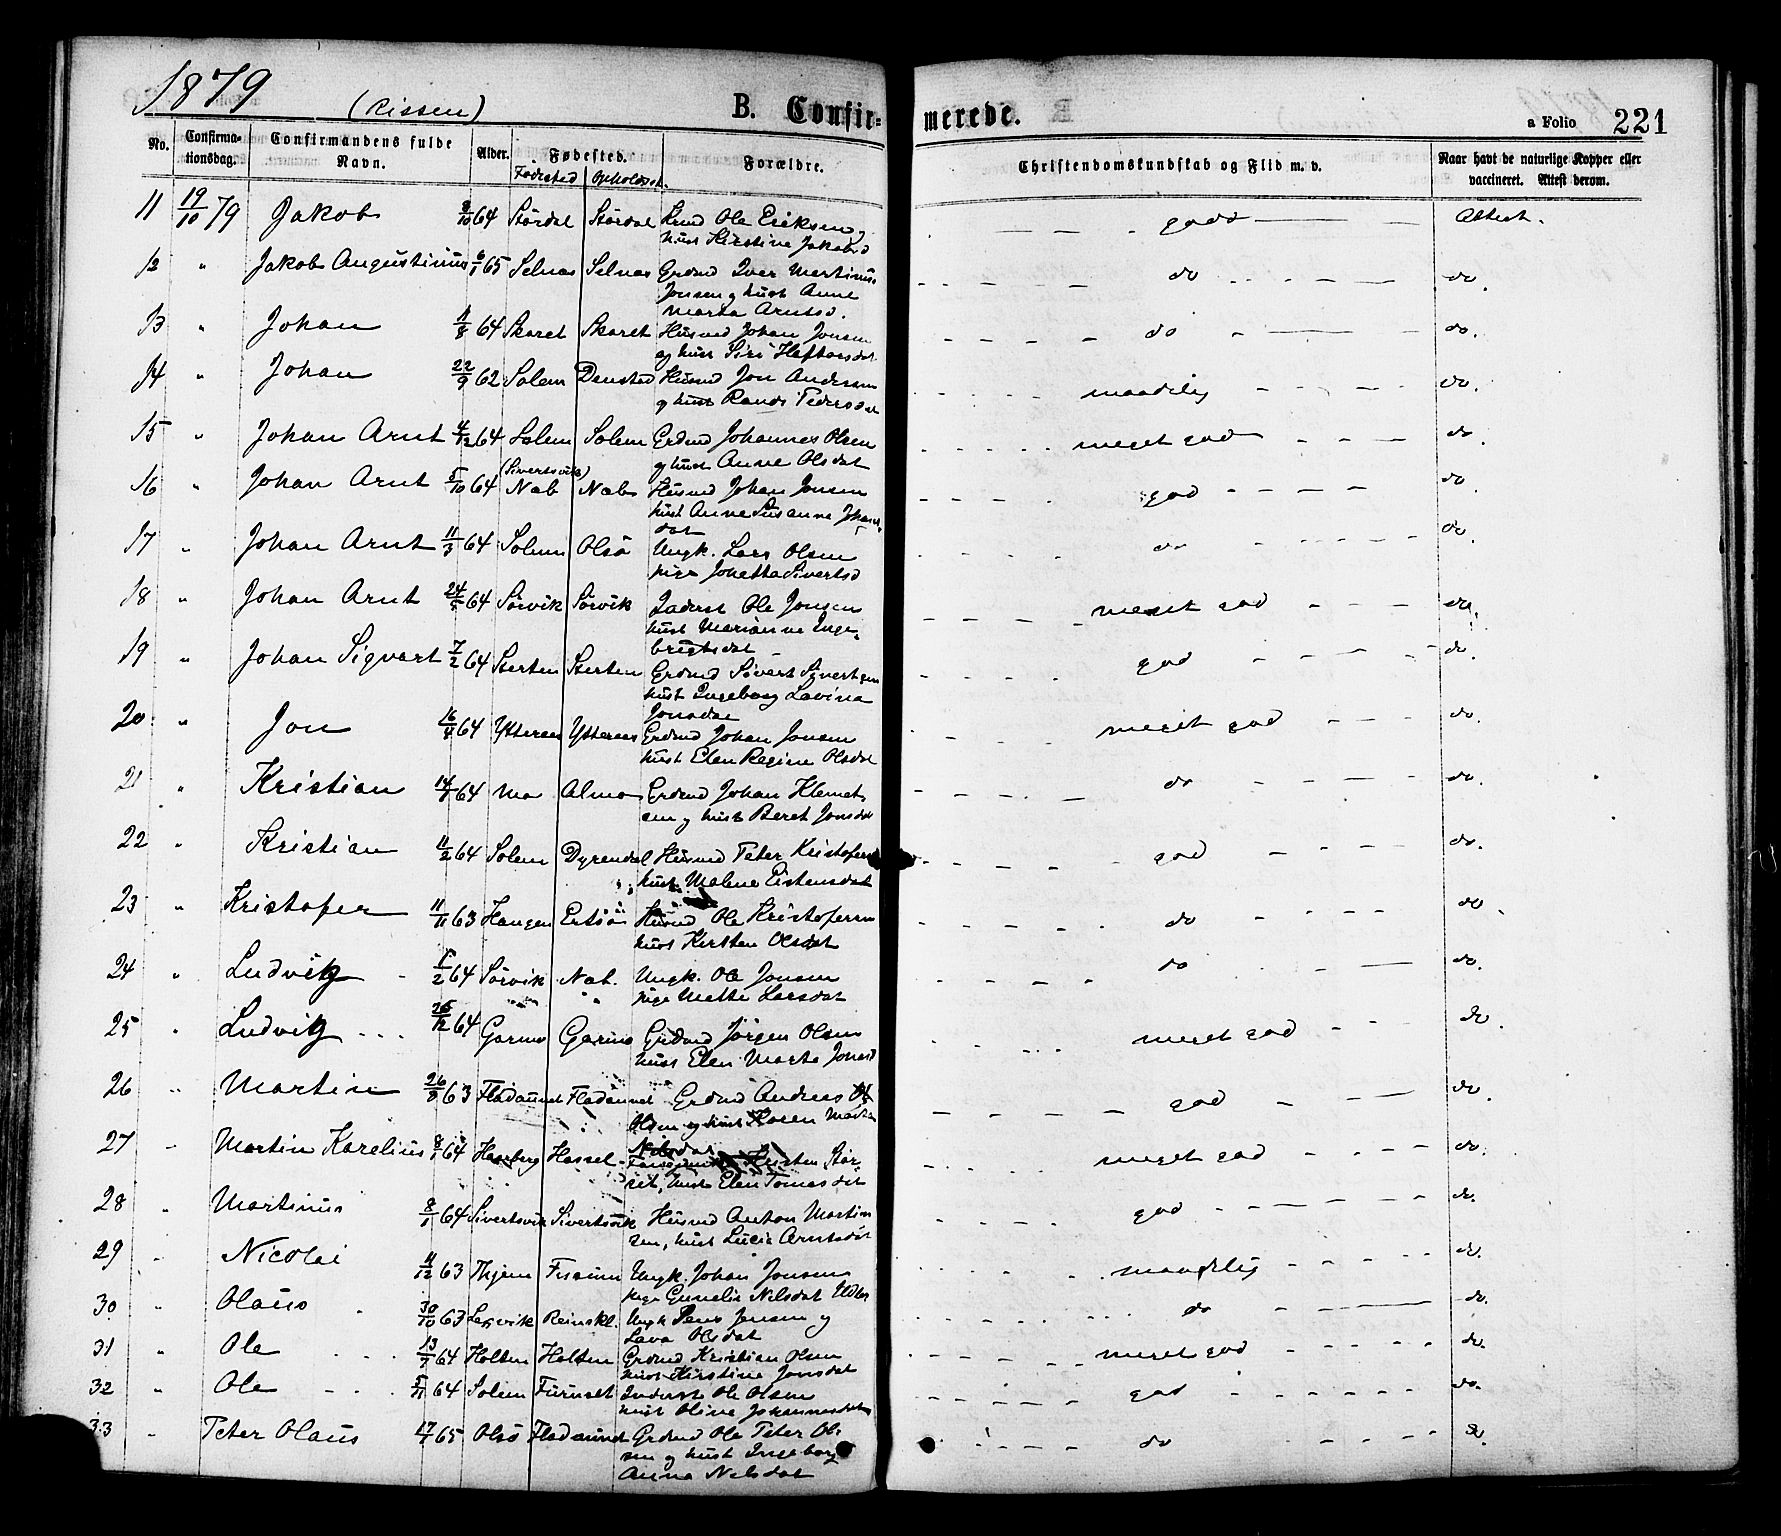 1879 (Rissen) B. Confir- merede. a Folio 221
No. Confirma-tionsdag. Confirmandens fulde Navn. Alder. Fødested. Forældre. Christendomskundskab og Flid m. v. Naar havt de naturlige Kopper eller vaccineret. Attest derom.
Fødested Opholdsst.
11 19/10 79 Jakob 8/10 64 Størdal Størdal Ole Eriksen og godt Attest.
hust Kirstine Jakobsd
12 " Jakob Augustinus 6/1 65 Selnæs Selnæs Grdmd Iver Martinus do do.
Jonsen og hust Anne
Marta Arntsd.
13 " Johan 1/8 64 Skaret Skaret Husmd Johan Jonsen do do.
og hust Siri
14 " Johan 22/9 62 Solem Denstad Husmd Jon Andersen maadelig do.
og hust Randi Pedersdat
15 " Johan Arnt 4/12 64 Solem Solem Grdmd Johannes Olsen meget god do.
og hust Anne Olsdat
16 " Johan Arnt 5/10 64 (Sivertsvik) Næb Næb Husmd Johan Jonsen god do.
hust Anne Susanne Johans
dat
17 " Johan Arnt 11/3 64 Solem Olsø Ungk. Lars Olsen do do.
pige Johetta Sivertsd
18 " Johan Arnt 24/5 64 Sørvik Sørvik Inderst Ole Jonsen meget god do.
hust Marianne Inge-
brigtsdat
19 " Johan Sigvart 7/2 64 Sterten Sterten Grdmd Sivert Sivertsen god do.
hust Ingeborg Lovina
Jonsdat
20 " Jon 16/4 64 Ytteraas Ytteraas Grdmd Johan Jonsen meget god do.
hust Elen Regine Olsdat
21 " Kristian 64 Mo Almo Grdmd Johan Klemet- do do.
sen og hust Beret Jonsdat
22 " Kristian 11/2 64 Solem Dyrendal Husmd Peter Kristofersen god do.
hust Malene Eistensdat
23 " Kristofer 11/11 63 Haugen Ertsø Husmd Ole Kristofersen do do.
hust Kirsten Olsdat
24 " Ludvig 64 Sørvik Næb. Ungk. Ole Jonsen do do.
pige Mette Larsdat
25 " Ludvig 26/12 64 Garme Grdmd Jørgen Olsen meget god do.
hust Elen Marta Jonsd
26 " Martin 26/8 63 Fladaunet Fladaunet Grdmd Andreas do.
Olsen og hust Karen Marta god
Nilsdat
27 " Martin Karelius 64 Haarberg Hassel Kirsten Stør- meget god do.
set, hust Elen Tomasdat
28 " Martinus 8/1 64 Sivertsvik Sivertsvik Husmd Anton Martin god do.
sen, hust Lucie Arntsdat
29 " Nicolai 11/12 63 Ungk. Johan Jonsen maadelig do.
pige Gunelie Nilsdat
30 " Olaus 30/10 63 Lexvik Reinskl. Ungk Jens Jensen og do do.
Lava Olsdat
31 " Ole 13/7 64 Holten Holten Grdmd Kristian Olsen meget god do.
hust Kirstine Jonsdat
32 " Ole 5/11 64 Solem Furuset Inderste Ole Olsen god do.
hust Oline Johannesdat
33 " Peter Olaus 65 Olsø Fladaunet Grdmd Ole Peter Ol- do do.
sen og hust Ingeborg
Anna Nilsdat